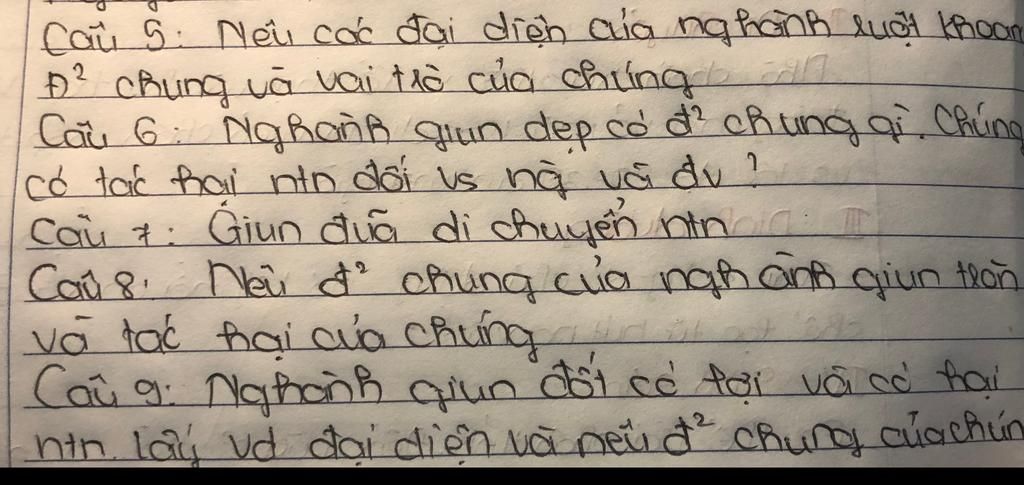 Câu 5: Nêu các đại diện của nghành ruột khoan
Đ² chung và vai trò của chúng
Câu 6: Nghành giun dẹp có đ² chung gì. Chúng
có tác hại ntn đối vs ng và đv ?
Câu 7: Giun đũa di chuyển ntn
Câu 8: Nêu đ² chung của nghành giun tròn
và tác hại của chúng
Câu 9: Nghành giun đốt có lợi và có hại
ntn. lấy vd đại diện và nêu đ² chung của chún